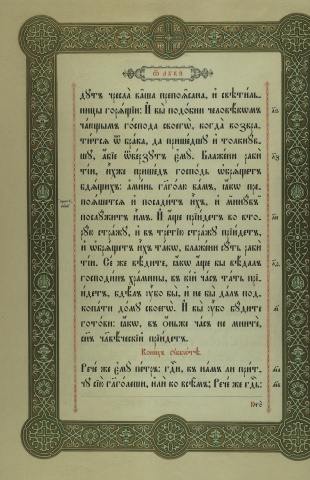 Ѿ ЛꙊКИ
дꙋтъ чресла̀ ва̑ша препоѧ̑сана, и҆ свѣти́ль-
ницы горѧ́щїи: И҆ вы̀ подо́бни человѣ́кѡмъ
ча́ющымъ го́спода своегѡ̀, когда̀ возвра-
ти́тсѧ ѿ бра́ка, да прише́дшꙋ и҆ толкнꙋ́в-
шꙋ, а҆́бїе ѿве́рзꙋтъ є҆мꙋ̀. Бл҃же́ни раби̑
ті́и, и҆̀хже прише́дъ госпо́дь ѡ҆брѧ́щетъ
бдѧ́щихъ: а҆ми́нь гл҃го́лю ва́мъ, ꙗ҆́кѡ пре-
поѧ́шетсѧ и҆ посади́тъ и҆̀хъ, и҆ минꙋ́въ
послꙋ́житъ и҆̀мъ. И҆ а҆́ще прїи́детъ во вто-
рꙋ́ю стра́жꙋ, и҆ въ тре́тїю стра́жꙋ прїи́детъ,
и҆ ѡ҆брѧ́щетъ и҆̀хъ та́кѡ, бл҃же́ни сꙋ́ть раби̑
ті́и. Се́ же вѣ́дите, ꙗ҆́кѡ а҆́ще бы вѣ́далъ
господи́нъ хра́мины, въ кі́й ча́съ та́ть прї-
и́детъ, бдѣ́лъ ᲂу҆́бѡ бы, и҆ не бы̀ да́лъ под-
копа́ти до́мꙋ своегѡ̀. И҆ вы̀ ᲂу҆̀бо бꙋ́дите
гото́ви: ꙗ҆́кѡ, въ ѻ҆́ньже ча́съ не мнитѐ,
сн҃ъ человѣ́ческїй прїи́детъ.
Коне́цъ сꙋббѡ́тѣ.
Рече́ же є҆мꙋ̀ пе́тръ: гдⷭ҇и, къ на́мъ ли при́т-
чꙋ сїю̀ глаго́леши, и҆лѝ ко всѣ̑мъ; Рече́ же гдⷭ҇ь: